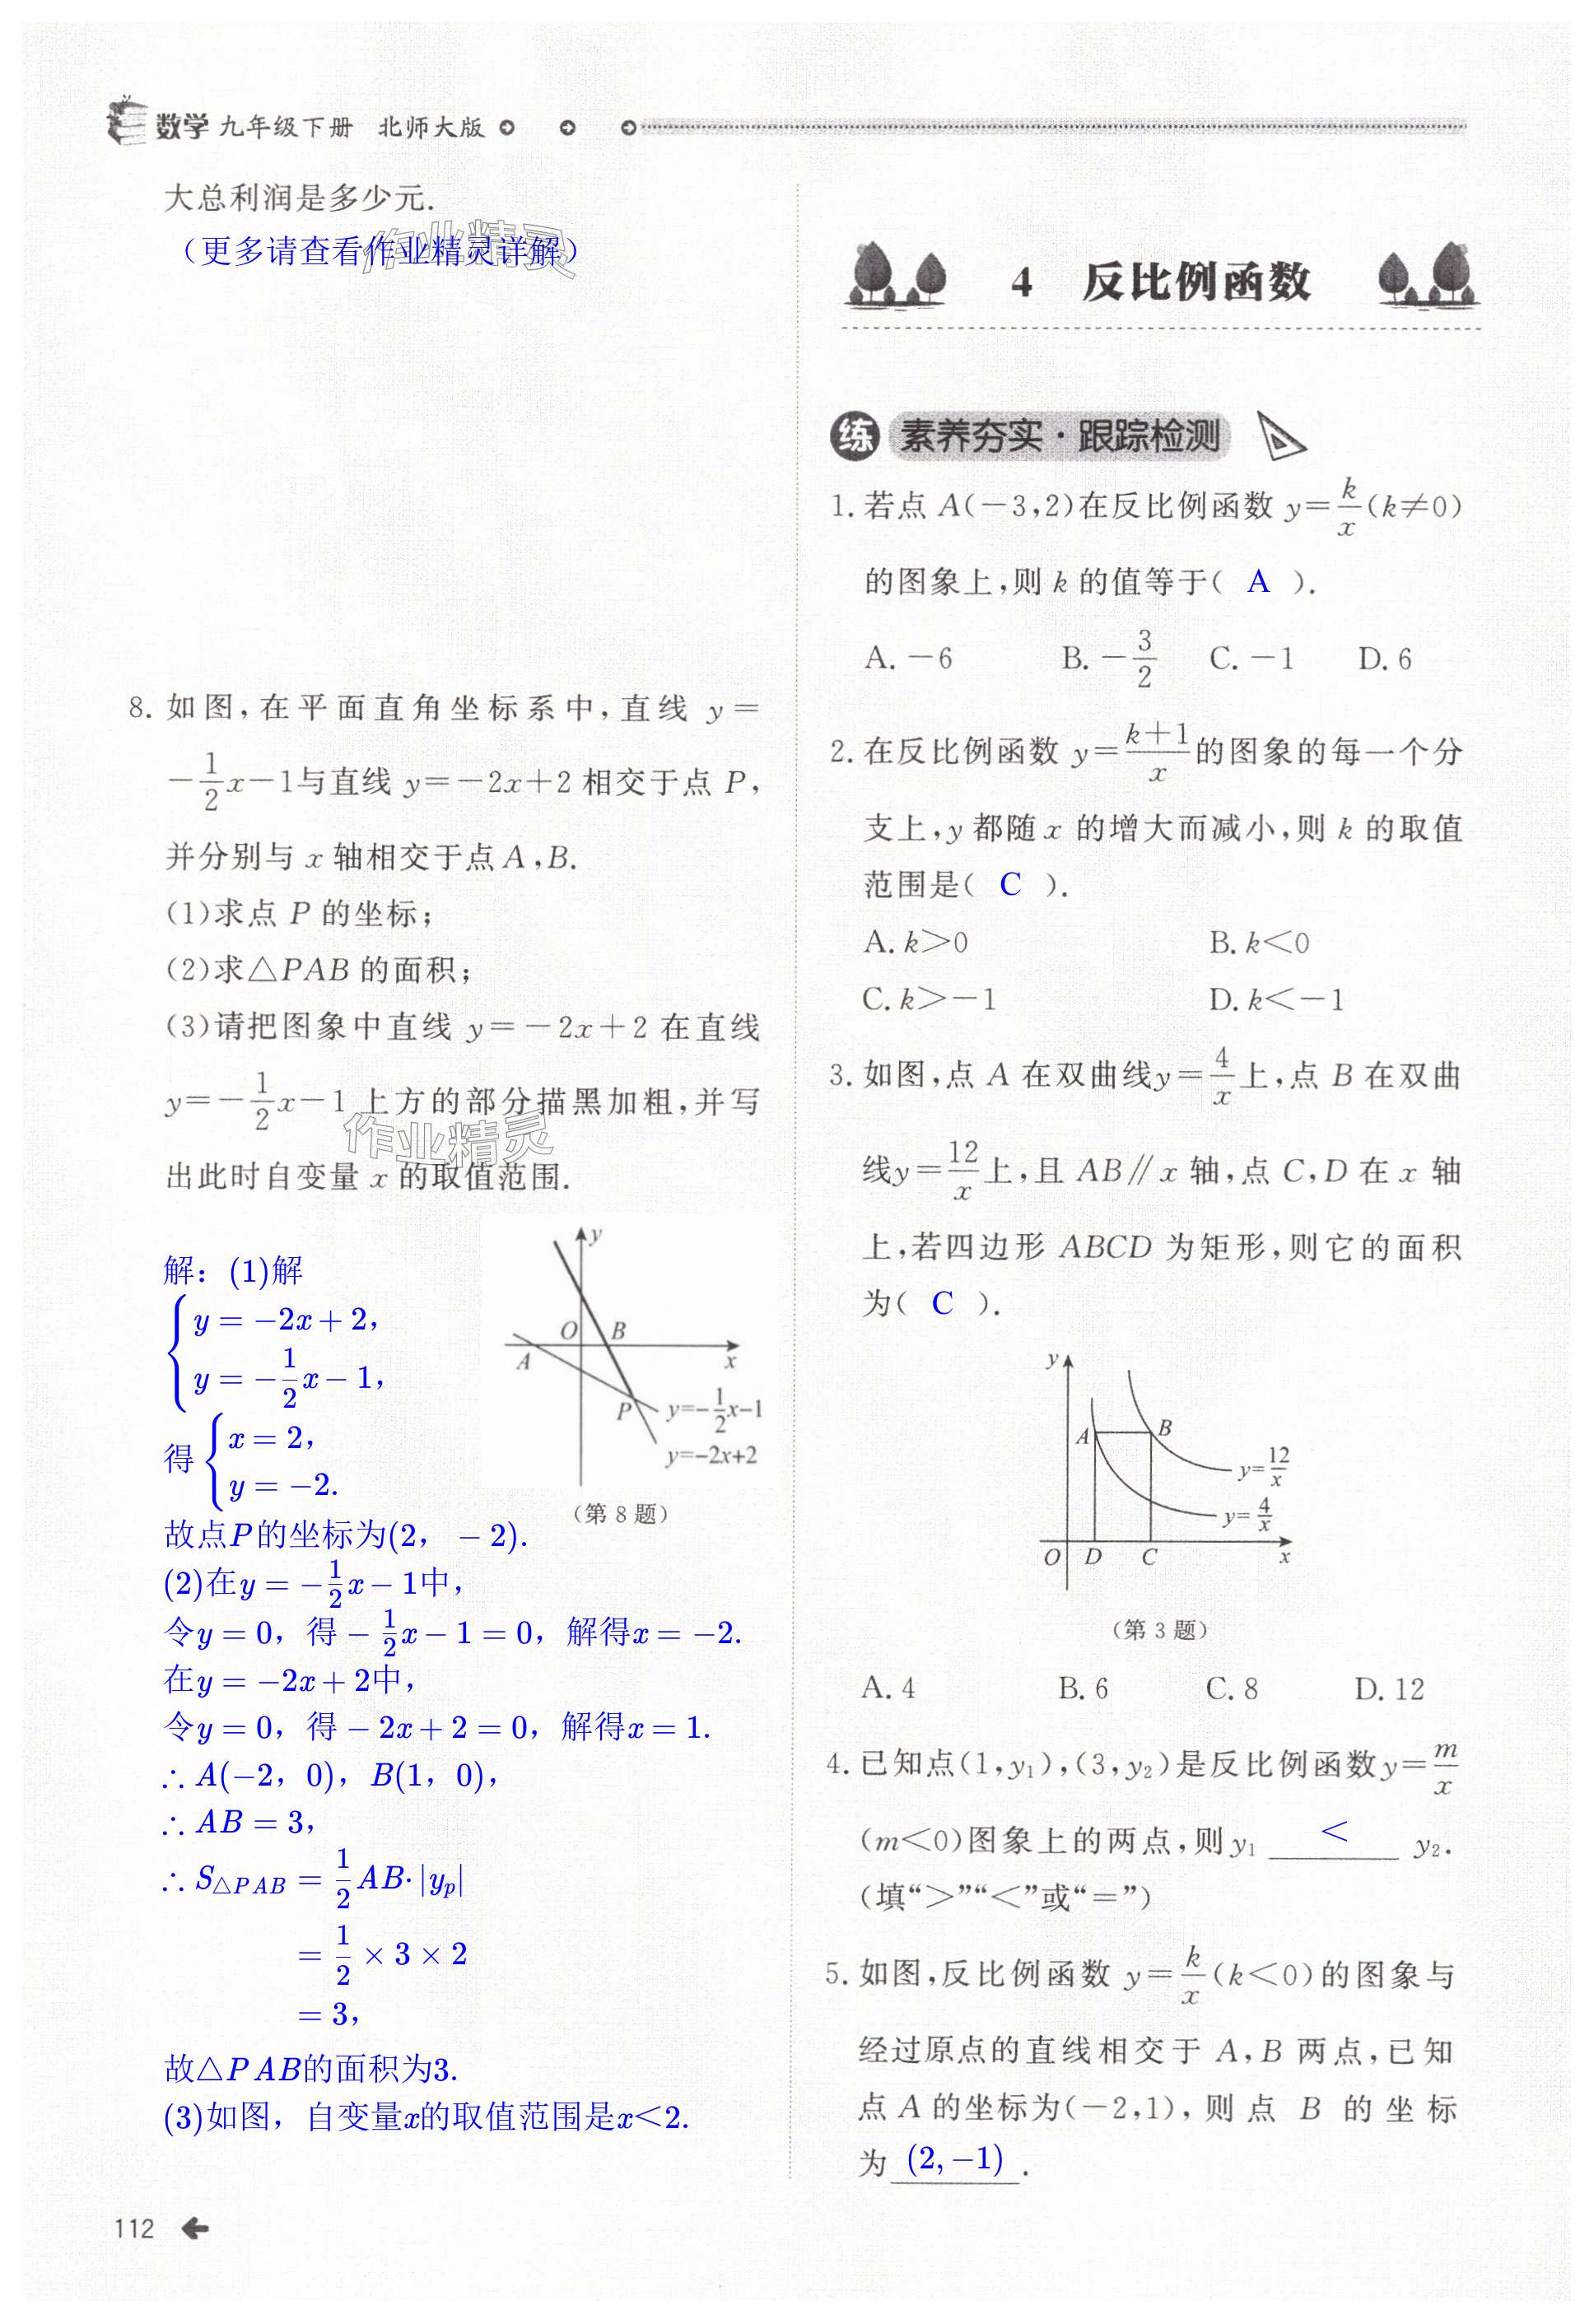 数学 九年级下册 北师大版
大总利润是多少元.
（更多请查看作业精灵详解）
作业精灵
8. 如图,在平面直角坐标系中,直线 y=
-1/2x-1与直线 y=-2x+2 相交于点 P,
并分别与 x 轴相交于点 A,B.
(1)求点 P 的坐标;
(2)求△PAB 的面积;
(3)请把图象中直线 y=-2x+2 在直线
y=-1/2x-1 上方的部分描黑加粗,并写
作业精灵
出此时自变量 x 的取值范围.
解：(1)解
{y=-2x+2,
y=-1/2x-1,
得{x=2,
y=-2.
故点P的坐标为(2，-2).
(2)在y=-1/2x-1中，
令y=0，得-1/2x-1=0，解得x=-2.
在y=-2x+2中，
令y=0，得-2x+2=0，解得x=1.
∴A(-2，0)，B(1，0)，
∴AB=3，
∴S△PAB=1/2AB·|yp|
=1/2×3×2
=3，
故△PAB的面积为3.
(3)如图，自变量x的取值范围是x<2.
y
O
B
A
x
P
y=-1/2x-1
y=-2x+2
(第 8 题)
112
4 反比例函数
练 素养夯实·跟踪检测
1. 若点 A(-3,2)在反比例函数 y=k/x(k≠0)
的图象上,则 k 的值等于( A ).
A. -6 B. -3/2 C. -1 D. 6
2. 在反比例函数 y=(k+1)/x的图象的每一个分
支上,y 都随 x 的增大而减小,则 k 的取值
范围是( C ).
A. k>0 B. k<0
C. k>-1 D. k<-1
3. 如图,点 A 在双曲线y=4/x上,点 B 在双曲
线y=12/x上,且 AB∥x 轴,点 C,D 在 x 轴
上,若四边形 ABCD 为矩形,则它的面积
为( C ).
y
A
B
y=12/x
y=4/x
O
D
C
x
(第 3 题)
A. 4 B. 6 C. 8 D. 12
4. 已知点(1,y₁),(3,y₂)是反比例函数y=m/x
(m<0)图象上的两点,则y₁ < y₂.
(填“>”“<”或“=”)
5. 如图,反比例函数 y=k/x(k<0)的图象与
经过原点的直线相交于 A,B 两点,已知
点 A 的坐标为(-2,1),则点 B 的坐标
为 (2,-1) .